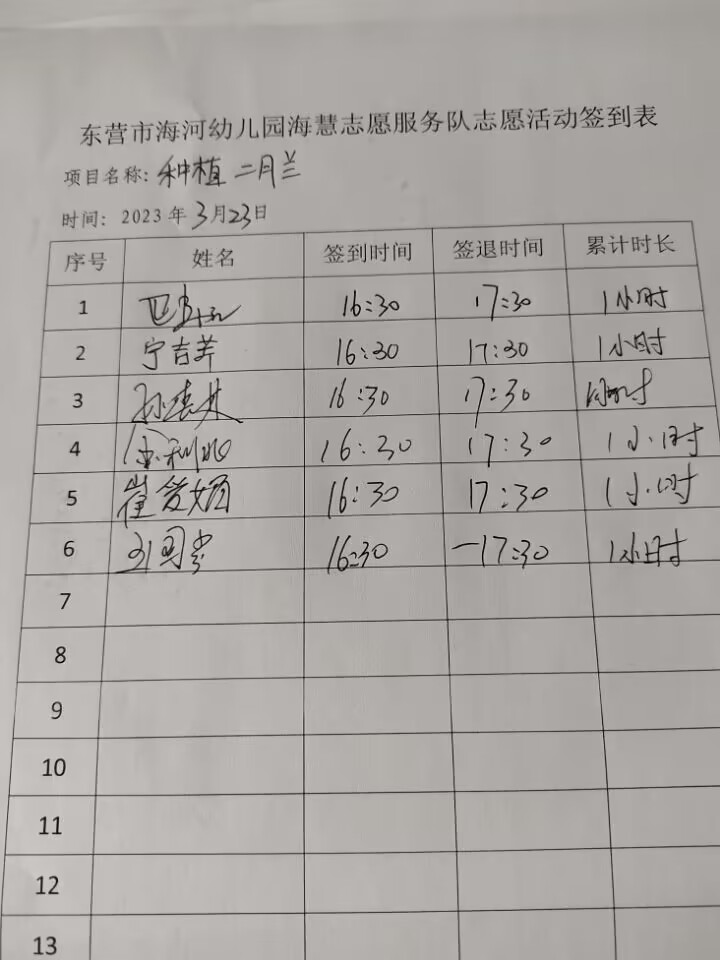 东营市海河幼儿园海慧志愿服务队志愿活动签到表
项目名称：种植二月兰
时间：2023年3月23日
序号 姓名 签到时间 签退时间 累计时长
1 16:30 17:30 1小时
2 宁吉芹 16:30 17:30 1小时
3 16:30 17:30 1小时
4 16:30 17:30 1小时
5 崔 16:30 17:30 1小时
6 16:30 —17:30 1小时
7
8
9
10
11
12
13